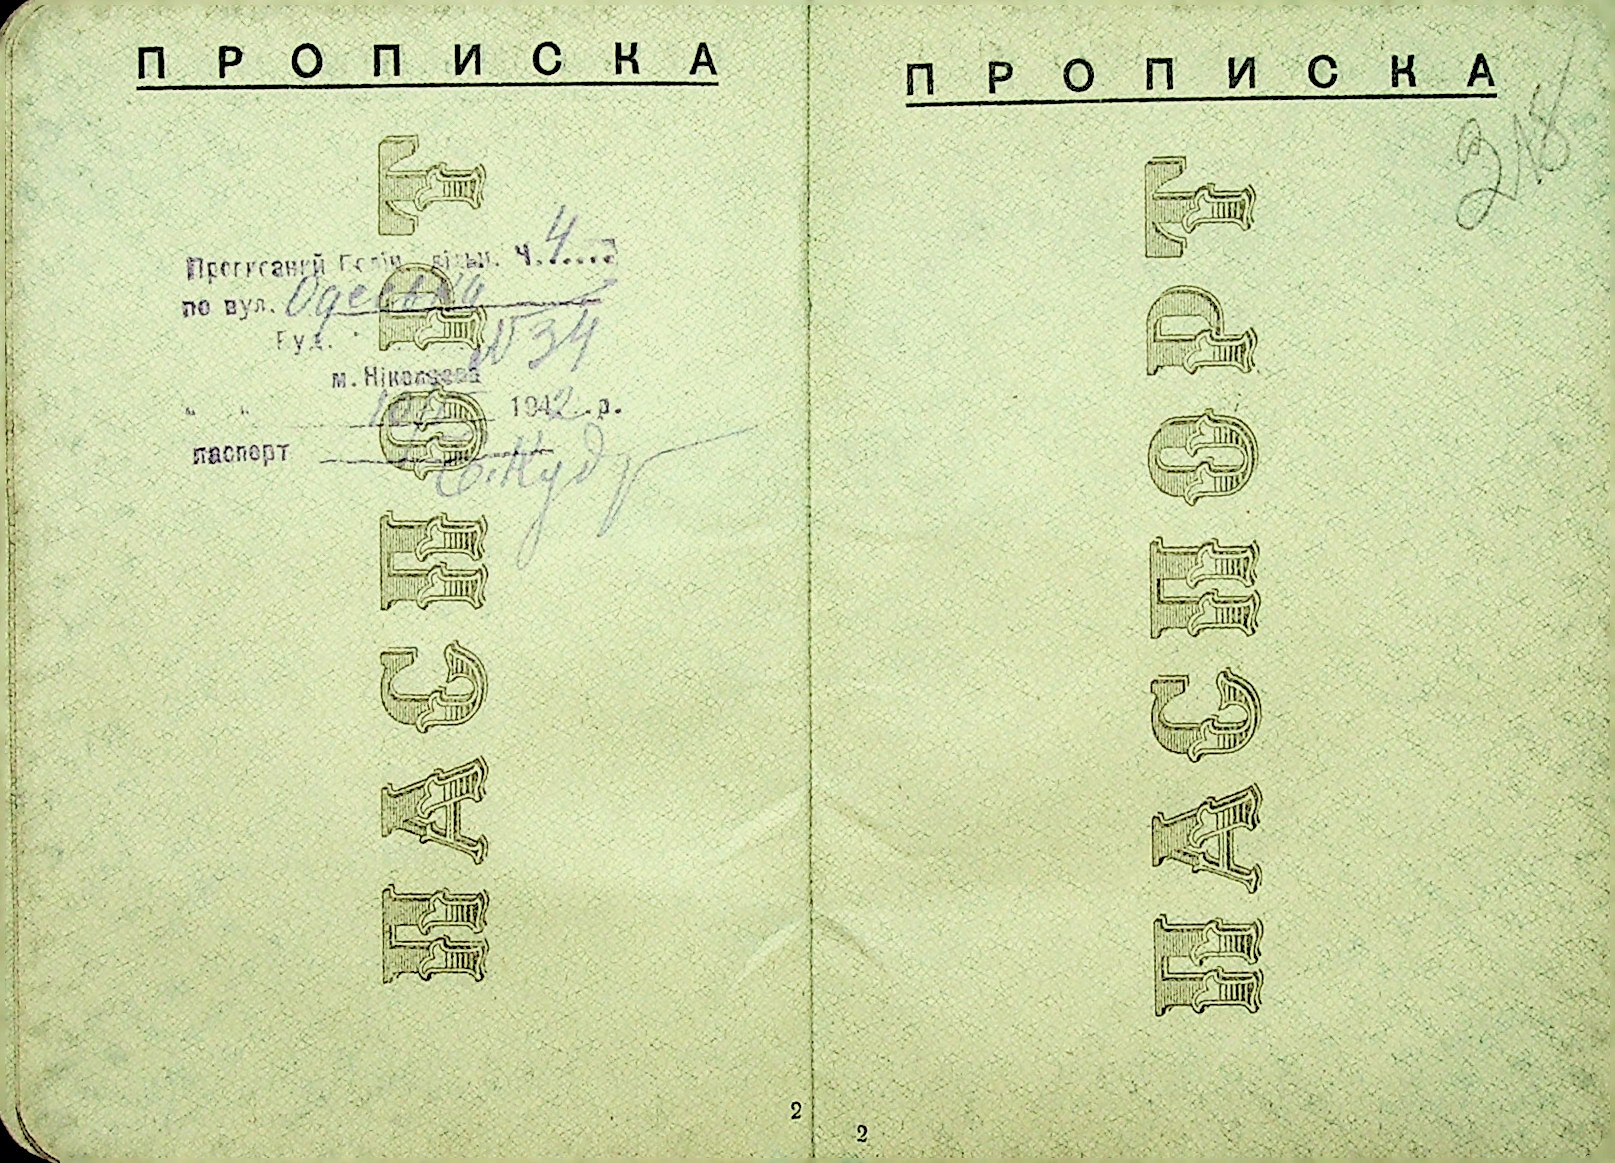 ПРОПИСКА
ПАСПОРТ
Прописаний Поліц. дільн. Ч. 4
по вул. Одеська
Буд. № 34
м. Ніколаєва
" " 1942 р.
паспорт
2
ПРОПИСКА
318
ПАСПОРТ
2